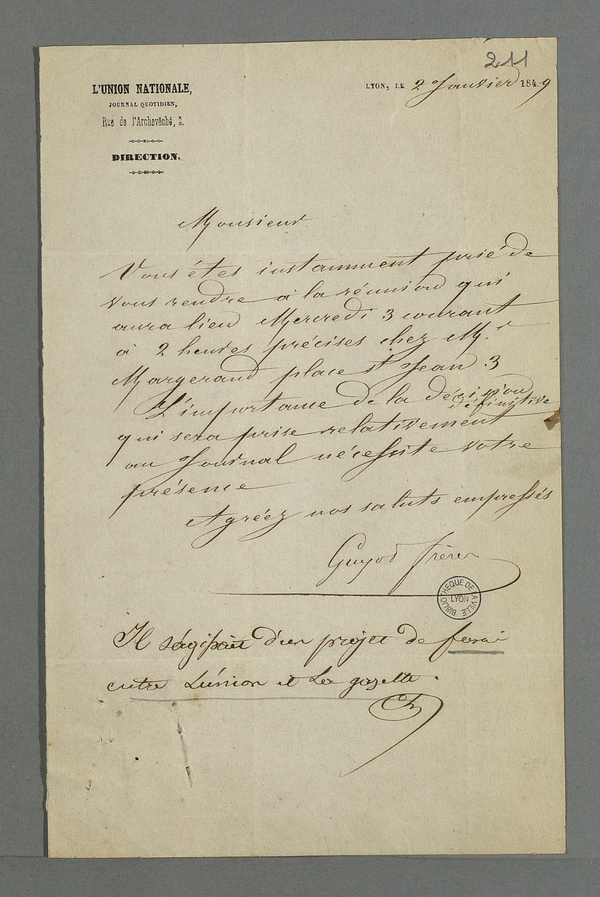 211
L'UNION NATIONALE,
JOURNAL QUOTIDIEN,
Rue de l'Archevêché, 2.
DIRECTION.
LYON, LE 2 Janvier 1849
Monsieur
Vous êtes instamment prié de
vous rendre à la réunion qui
aura lieu Mercredi 3 courant
à 2 heures précises chez Mr
Margerand place St Jean 3
L'importance de la décision
définitive
qui sera prise relativement
au Journal nécessite votre
présence
Agréez nos saluts empressés
Guyot frères
BIBLIOTHEQUE DE LA VILLE
LYON
Il s'agissait d'un projet de
entre L'union et La gazette.